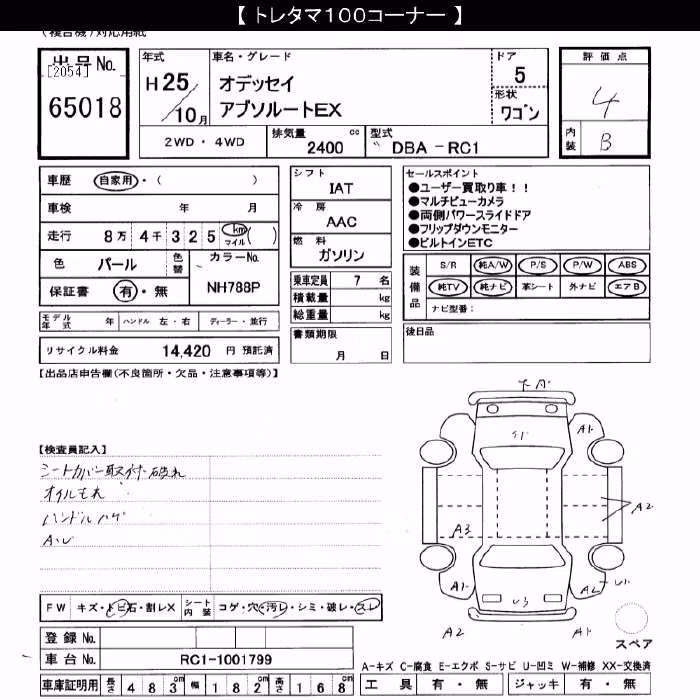 【 トレタマ100コーナー 】
(複合機)対応用紙
出品No. [2054] 65018
年式 H25/10月
車名・グレード
オデッセイ
アブソルートEX
ドア 5
形状 ワゴン
評価点 4
内装 B
2WD・4WD
排気量 2400 cc
型式 DBA－RC1
車歴 自家用・( )
車検 年 月
走行 8万4千325 km マイル ( )
色 パール 色替 カラーNo. NH788P
保証書 有・無
モデル年式 年 ハンドル 左・右 ディーラー・並行
リサイクル料金 14,420 円 預託済
シフト IAT
冷房 AAC
燃料 ガソリン
乗車定員 7 名
積載量 kg
総重量 kg
書類期限 月 日
セールスポイント
●ユーザー買取り車！！
●マルチビューカメラ
●両側パワースライドドア
●フリップダウンモニター
●ビルトインETC
装備品 S/R 純A/W P/S P/W ABS
純TV 純ナビ 革シート 外ナビ エアB
ナビ型番：
後日品
【出品店申告欄(不良箇所・欠品・注意事項等)】
【検査員記入】
シートカバー取付・破れ
オイルもれ
ハンドルハゲ
A・U
FW キズ・トビ石・割レX シート内装 コゲ・穴・汚レ・シミ・破レ・スレ
登録No.
車台No. RC1-1001799
車庫証明用 長さ 483cm 幅 182cm 高さ 168cm
下月
A1
A1
A2
A3
A1
A2
U1
U3
A2
A1
スペア
A-キズ C-腐食 E-エクボ S-サビ U-凹ミ W-補修 XX-交換済
工具 有・無 ジャッキ 有・無